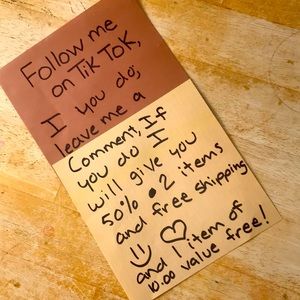 Follow me
on Tik Tok,
I you do;
leave me a
Comment, If
you do I
will give you
50% • 2 items
and free shipping
and 1 item of
10.00 value free!